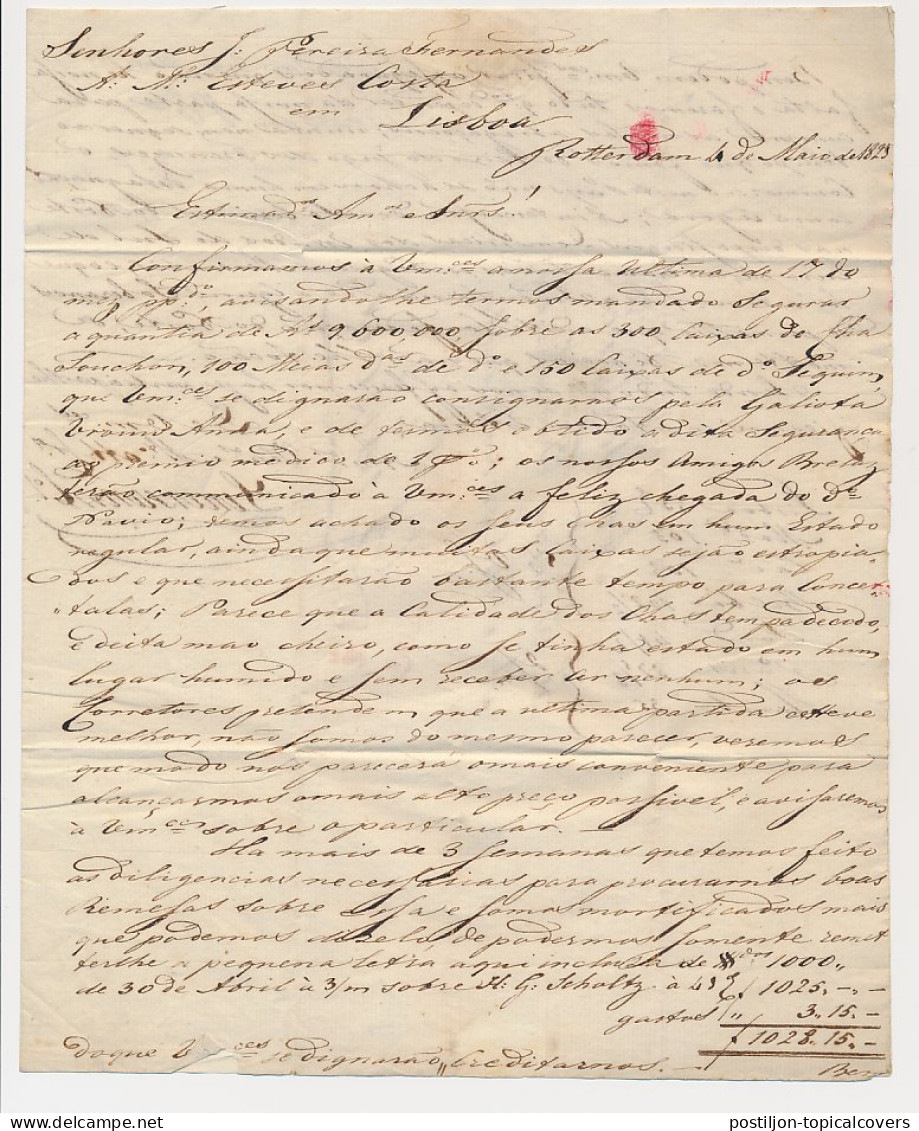 Senhores J: Pereira Fernandes
A: M: Esteves Costa
em
Lisboa
Rotterdam 4 de Maio de 1825
Estimad.os Am.os e Snrs!
Confirmamos à Vm.ces a nossa ultima de 17 do
m/ pp.do, avisandolhe termos mandado Segurar
a quantia de Rs 9600,000 sobre as 300 Caixas de Cha
Souchon, 100 Meias d.as de d.o e 150 Caixas de d.o Sequim,
que Vm.ces se dignarão consignarnos pela Galiota
Vrouw Anna, e de termos obtido a dita Segurança
ao premio modico de 1 p%; os nossos Amigos
terão communicado à Vm.ces a feliz chegada do d.o
Navio; temos achado os seus Chas em hum Estado
regular, ainda que muitas Caixas sejão estropia-
dos e que necessitarão bastante tempo para Concer-
"talas; Parece que a Calidade dos Chas tem padecido,
e deita mao cheiro, como se tinha estado em hum
lugar humido e sem receber ar nenhum; os
Corretores pretendem que a ultima partida esteve
melhor, não somos do mesmo parecer, veremos
que modo nos parecerá o mais conveniente para
alcançarmos o mais alto preço possivel, e avisaremos
à Vm.ces sobre o particular. —
Ha mais de 3 semanas que temos feito
as diligencias necessarias para procurarnos boas
Remesas sobre essa e somos mortificados mais
que podemos dizelo de podermos somente remet
terlhe a pequena letra aqui inclusa de 1000,,
de 30 de Abril à 3/m sobre H: G: Scholtz a 41 f 1025.-.-
gastos ,, 3.. 15.-
f 1028.. 15.-
do que Vm.ces se dignarão Creditarnos. —
Bem
postiljon-topicalcovers